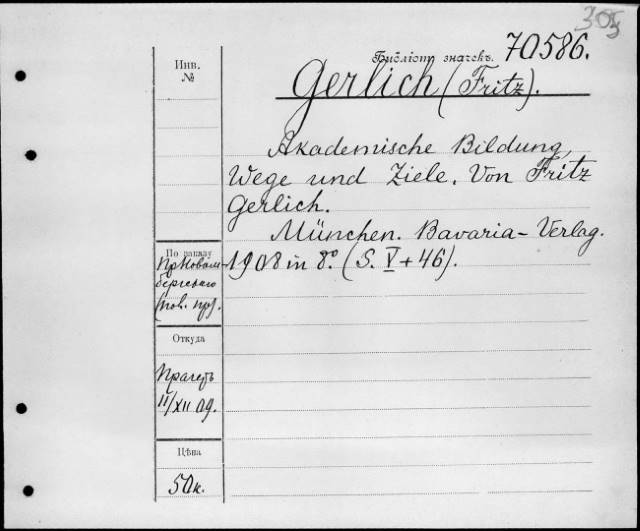 305
Инв.
№
Библіот. значекъ. 70586.
Gerlich (Fritz).
Akademische Bildung,
Wege und Ziele. Von Fritz
Gerlich.
München. Bavaria-Verlag.
1908 in 8º. (S. V + 46).
По заказу
бергскаго
Откуда
II/XII 09.
Цѣна
50к.